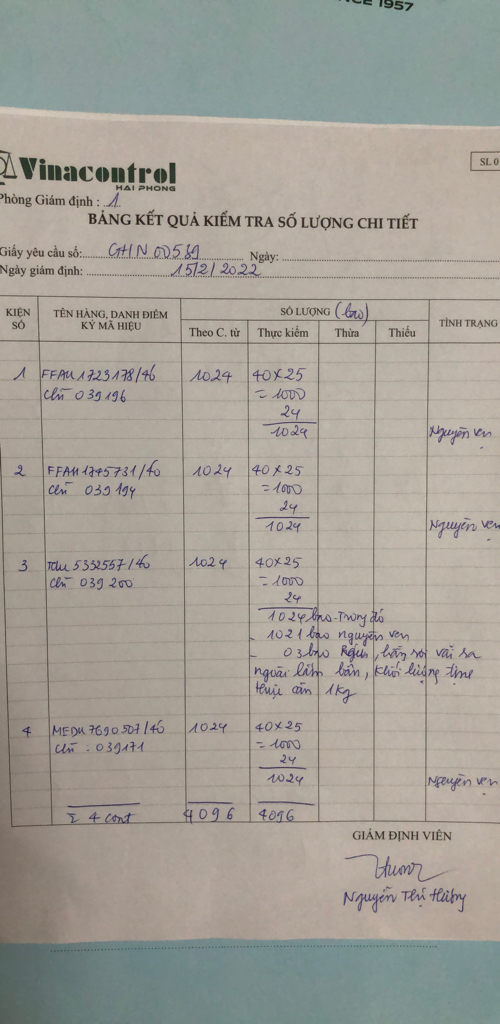 NCE 1957
Vinacontrol
HAI PHONG
SL 0
Phòng Giám định : 1
BẢNG KẾT QUẢ KIỂM TRA SỐ LƯỢNG CHI TIẾT
Giấy yêu cầu số: GHN 00589 Ngày:
Ngày giám định: 15/2/2022
KIỆN SỐ TÊN HÀNG, DANH ĐIỂM KÝ MÃ HIỆU SỐ LƯỢNG (bao) TÌNH TRẠNG
Theo C. từ Thực kiểm Thừa Thiếu
1 FFAU 1723178/40 1024 40×25
chì 039196 = 1000
24
1024 Nguyên vẹn
2 FFAU 1745731/40 1024 40×25
chì 039194 = 1000
24
1024 Nguyên vẹn
3 5332557/40 1024 40×25
chì 039200 = 1000
24
1024 bao. Trong đó
- 1021 bao nguyên vẹn
- 03 bao , vãi ra
ngoài lấm bẩn, khối lượng
cân 1kg
4 MEDU 7690507/40 1024 40×25
chì - 039171 = 1000
24
1024 Nguyên vẹn
Σ 4 cont 4096 4096
GIÁM ĐỊNH VIÊN
Nguyễn Thị